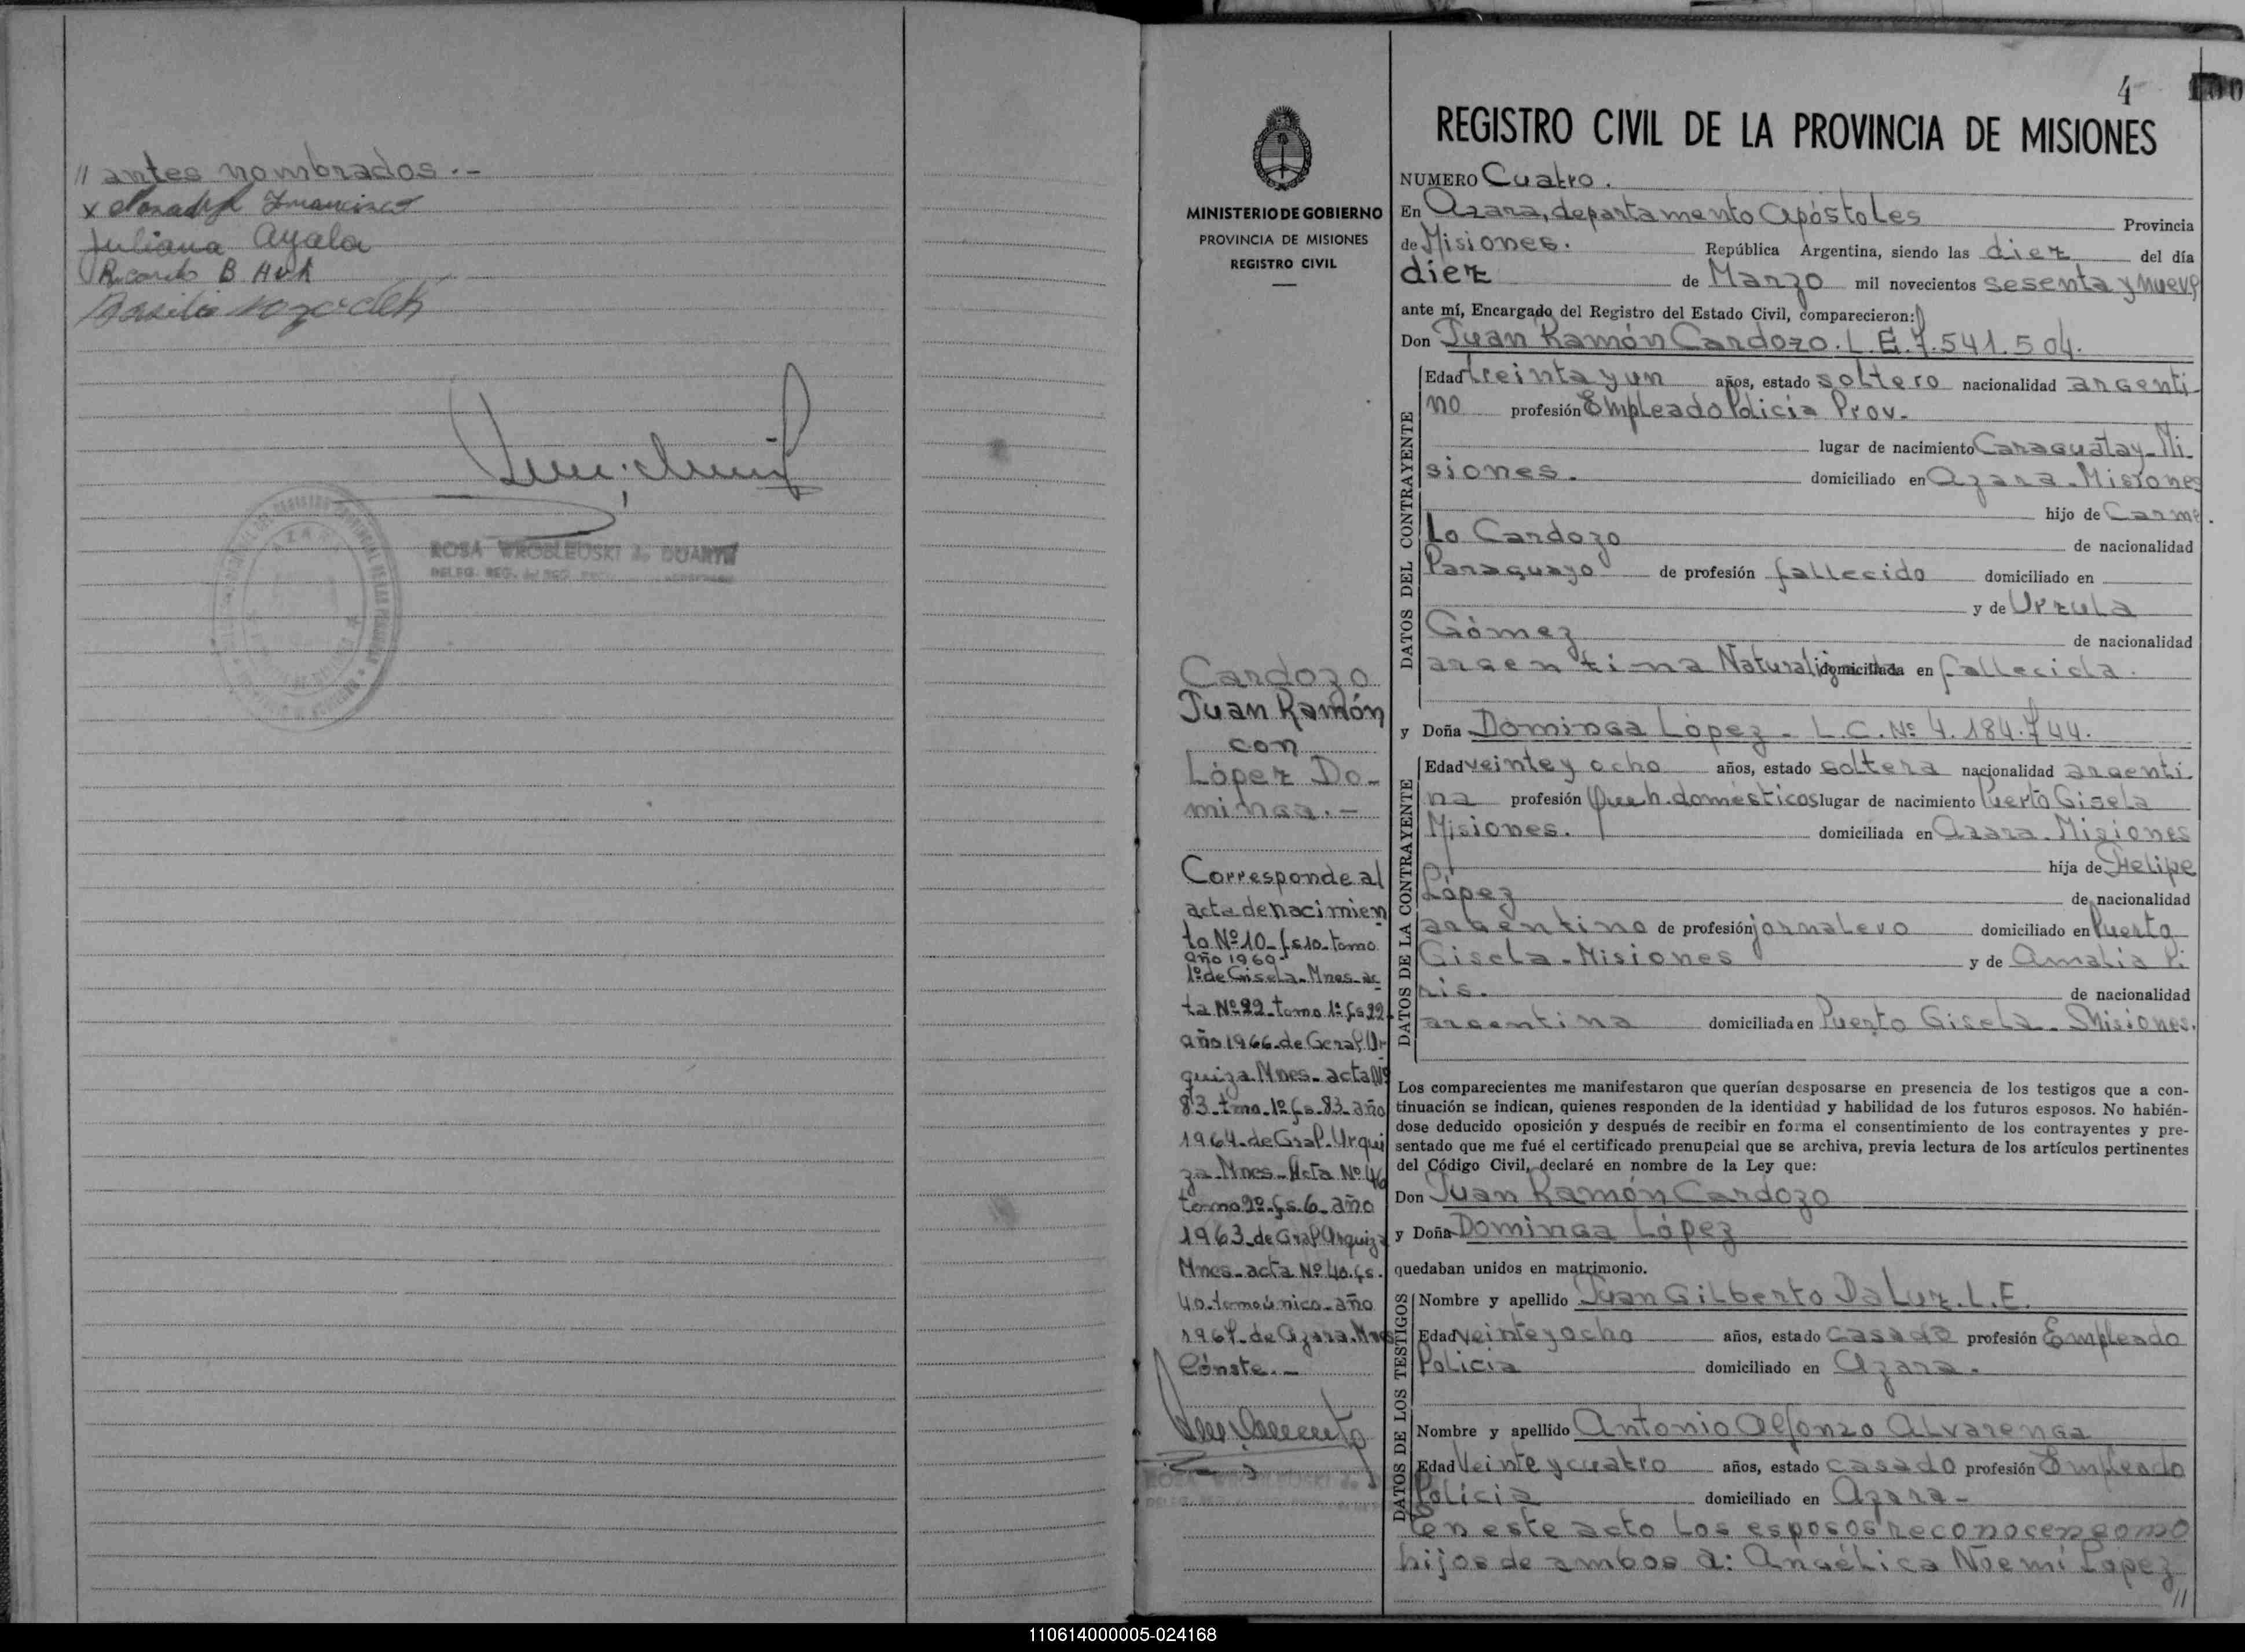 // antes nombrados.-
x Francisco
Juliana Ayala
Ricardo B.
Basilio
ROSA WROBLEUSKI de DUARTE
DELEG. REG.
AZARA
4
REGISTRO CIVIL DE LA PROVINCIA DE MISIONES
MINISTERIO DE GOBIERNO
PROVINCIA DE MISIONES
REGISTRO CIVIL
Cardozo
Juan Ramón
con
López Do-
minga.-
Corresponde al
acta de nacimien
to Nº 10- fs 10- tomo
año 1960
1º de Gisela- Mnes- ac
ta Nº 22- tomo 1º fs 22-
año 1966- de Gral. Ur
quiza. Mnes- acta Nº
83- tmo- 1º fs- 83- año
1964- de Gral. Urqui
za- Mnes- Acta Nº 46
tomo 2º- fs. 6- año
1963- de Gral Urquiza
Mnes- acta Nº 40. fs.
40- tomo único- año
de Azara. Mnes
Cónste.-
NUMERO Cuatro.
En Azara, departamento Apóstoles Provincia
de Misiones. República Argentina, siendo las diez del día
diez de Marzo mil novecientos sesenta y nueve
ante mí, Encargado del Registro del Estado Civil, comparecieron:
Don Juan Ramón Cardozo. L.E. 7.541.504.
DATOS DEL CONTRAYENTE
Edad treinta y un años, estado soltero nacionalidad argenti-
no profesión Empleado Policía Prov-
lugar de nacimiento Caraguatay- Mi-
siones. domiciliado en Azara- Misiones
hijo de Carme
lo Cardozo de nacionalidad
Paraguayo de profesión fallecido domiciliado en
y de Urzula
Gómez de nacionalidad
argentina Naturalizada domiciliada en fallecida.
y Doña Dominga López- L.C. Nº 4.184.744.
DATOS DE LA CONTRAYENTE
Edad veinte y ocho años, estado soltera nacionalidad argenti-
na profesión Queh. domésticos lugar de nacimiento Puerto Gisela
Misiones. domiciliada en Azara. Misiones
hija de Felipe
López de nacionalidad
argentino de profesión jornalero domiciliado en Puerto
Gisela- Misiones y de Amalia Pi
ris. de nacionalidad
argentina domiciliada en Puerto Gisela- Misiones.
Los comparecientes me manifestaron que querían desposarse en presencia de los testigos que a con-
tinuación se indican, quienes responden de la identidad y habilidad de los futuros esposos. No habién-
dose deducido oposición y después de recibir en forma el consentimiento de los contrayentes y pre-
sentado que me fué el certificado prenupcial que se archiva, previa lectura de los artículos pertinentes
del Código Civil, declaré en nombre de la Ley que:
Don Juan Ramón Cardozo
y Doña Dominga López
quedaban unidos en matrimonio.
DATOS DE LOS TESTIGOS
Nombre y apellido Juan Gilberto Da Luz. L.E.
Edad Veinte y ocho años, estado casado profesión Empleado
Policía domiciliado en Azara.
Nombre y apellido Antonio Alfonzo Alvarenga
Edad Veinte y cuatro años, estado casado profesión Empleado
Policía domiciliado en Azara-
En este acto los esposos reconocen como
hijos de ambos a: Angélica Noemí López
//
110614000005-024168